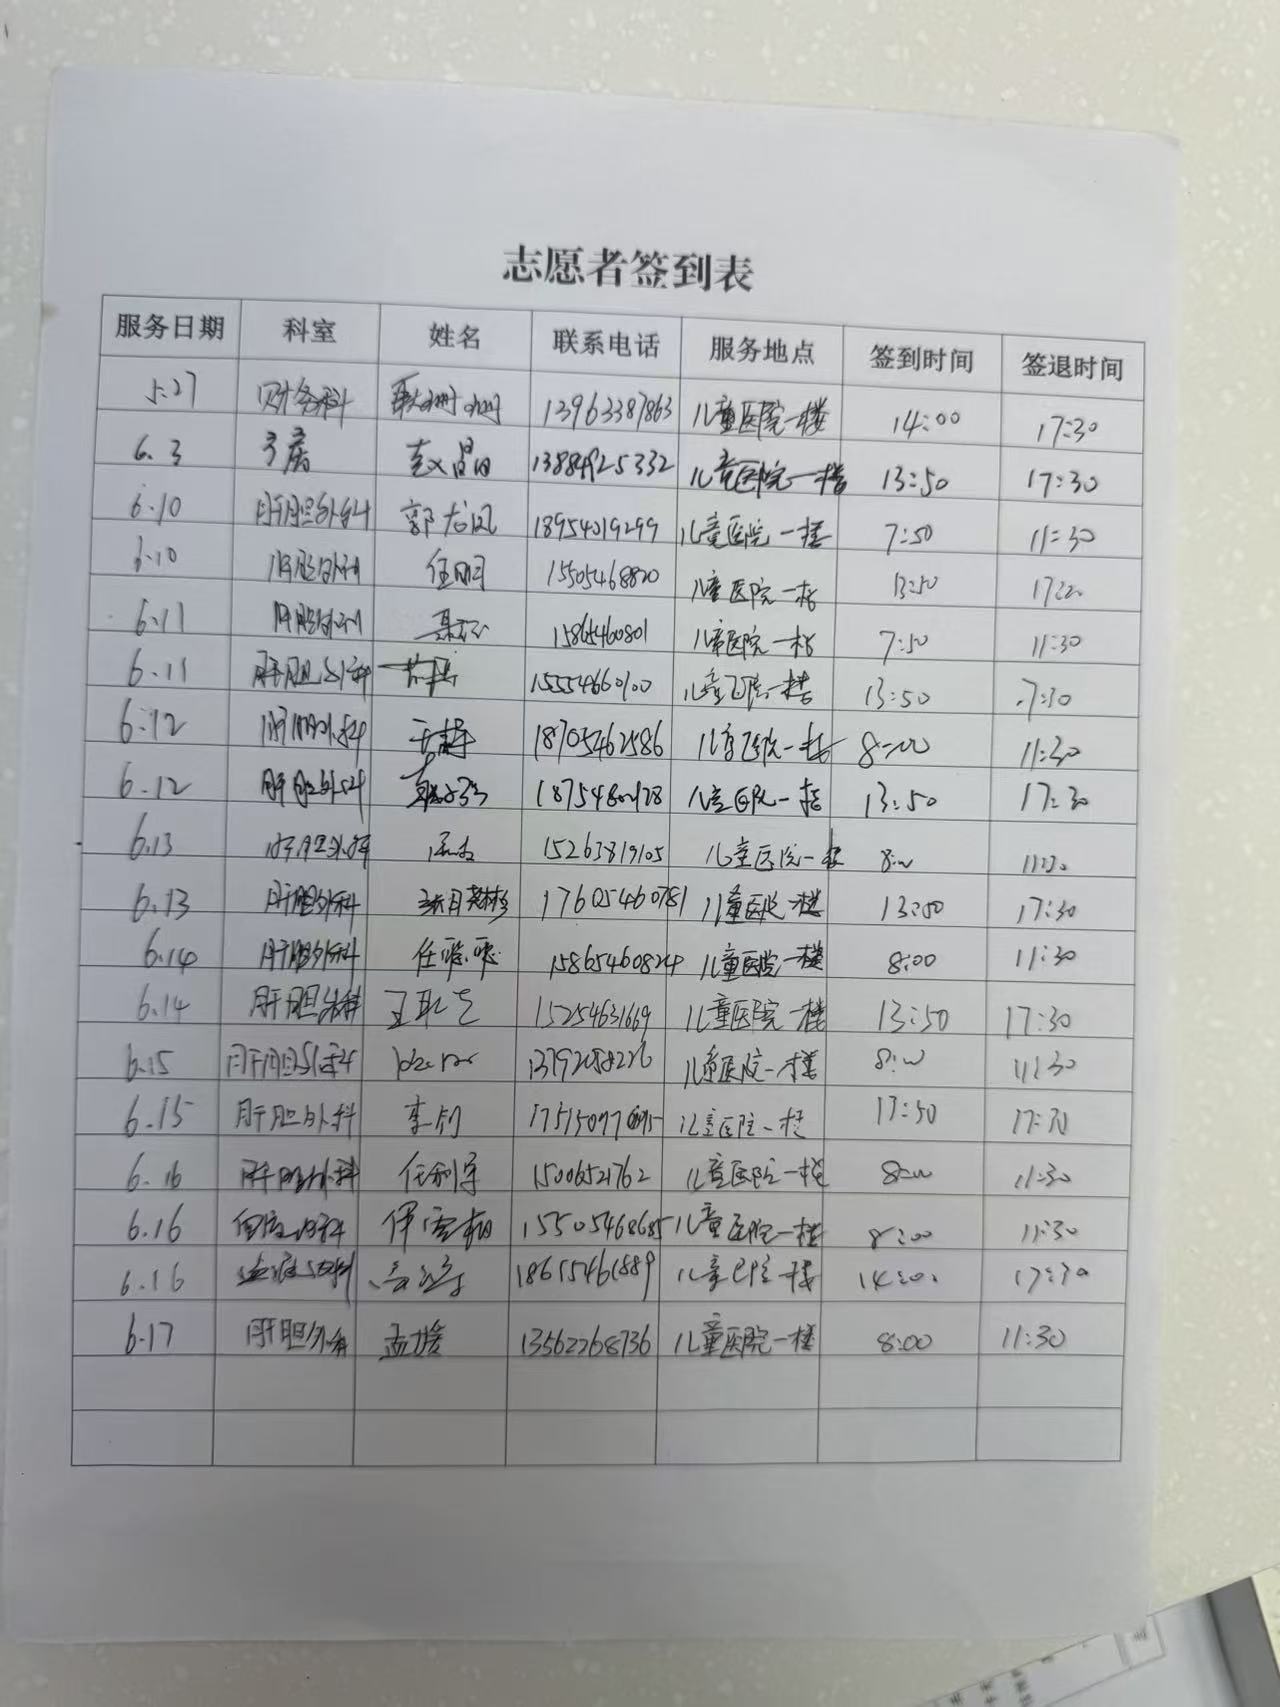 志愿者签到表
服务日期 科室 姓名 联系电话 服务地点 签到时间 签退时间
5.27 财务科 13963387863 儿童医院一楼 14:00 17:30
6.3 13884925332 儿童医院一楼 13:50 17:30
6.10 肝胆外科 郭龙凤 18954019299 儿童医院一楼 7:50 11:30
6.10 肝胆外科 任明 15505468820 儿童医院一楼 13:50 17:20
6.11 肝胆外科 15865460801 儿童医院一楼 7:50 11:30
6.11 肝胆外科 15554660100 儿童医院一楼 13:50 17:30
6.12 肝胆外科 18705462586 儿童医院一楼 8:00 11:30
6.12 肝胆外科 儿童医院一楼 13:50 17:30
6.13 肝胆外科 15263819105 儿童医院一楼 8:00 11:30
6.13 肝胆外科 17605460781 儿童医院一楼 13:50 17:30
6.14 肝胆外科 15865460824 儿童医院一楼 8:00 11:30
6.14 肝胆外科 15254631669 儿童医院一楼 13:50 17:30
6.15 肝胆外科 儿童医院一楼 8:00 11:30
6.15 肝胆外科 李钊 儿童医院一楼 13:50 17:30
6.16 肝胆外科 任利宇 儿童医院一楼 8:00 11:30
6.16 15505468685 儿童医院一楼 8:00 11:30
6.16 18655461889 儿童医院一楼 14:00 17:30
6.17 肝胆外科 孟媛 13562268736 儿童医院一楼 8:00 11:30